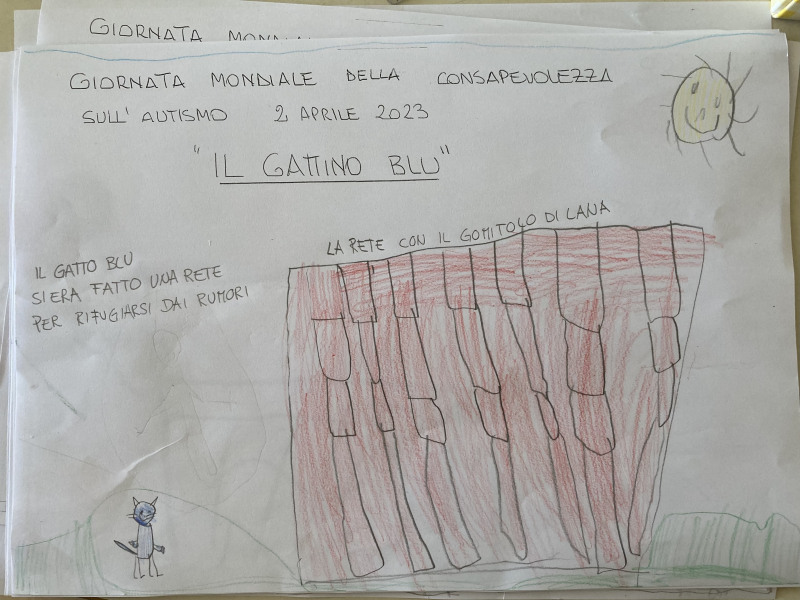 GIORNATA MONDIALE
GIORNATA MONDIALE DELLA CONSAPEVOLEZZA
SULL' AUTISMO 2 APRILE 2023
"IL GATTINO BLU"
LA RETE CON IL GOMITOLO DI LANA
IL GATTO BLU
SI ERA FATTO UNA RETE
PER RIFUGIARSI DAI RUMORI